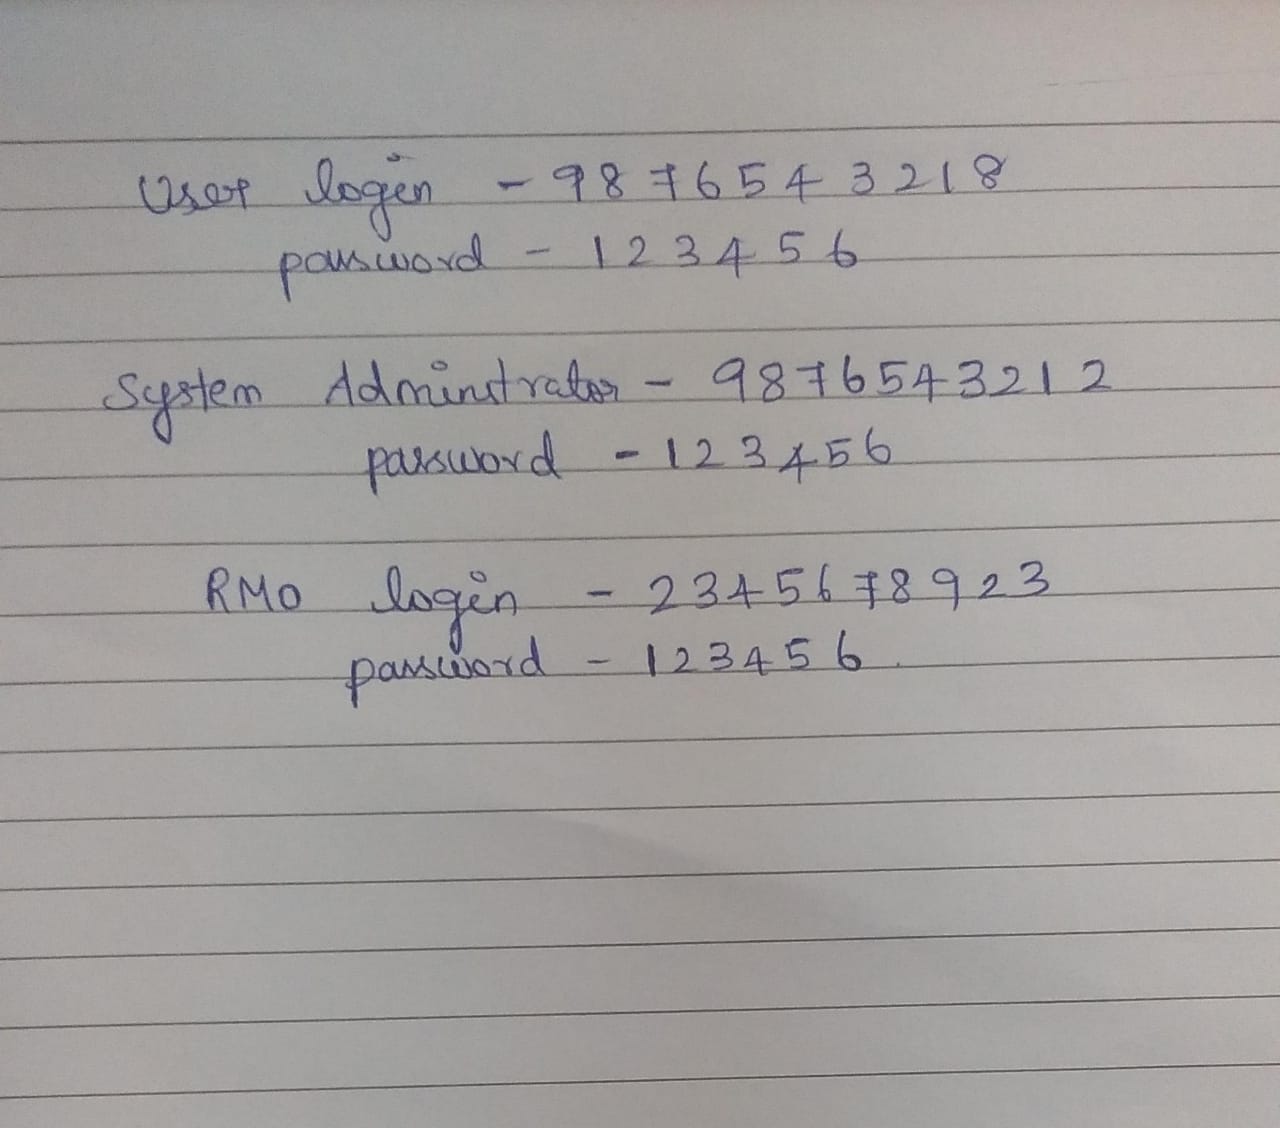 User login - 9876543218
password - 123456
System Adminstrator - 9876543212
password - 123456
RMO login - 2345678923
password - 123456